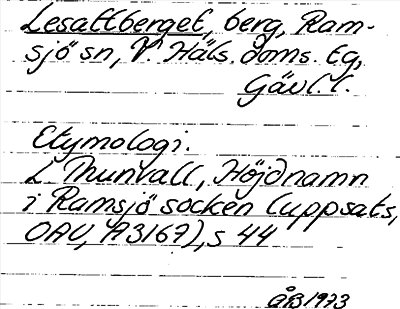 Lesattberget, berg, Ram-
sjö sn, V. Häls. doms. tg,
Gävl. l.
Etymologi.
L Thunvall, Höjdnamn
i Ramsjö socken (uppsats,
OAU, A3167), s 44
ÅB 1973